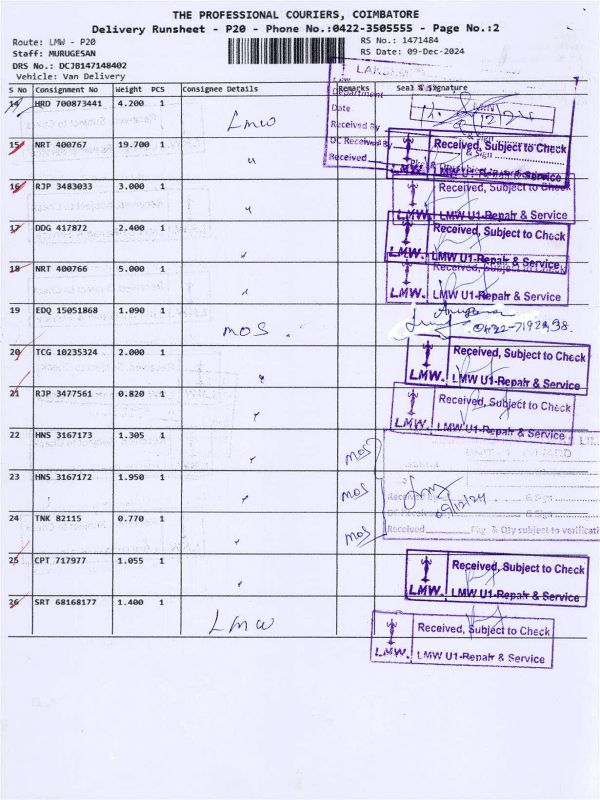 THE PROFESSIONAL COURIERS, COIMBATORE
Delivery Runsheet - P20 - Phone No.:0422-3505555 - Page No.:2
Route: LMW - P20
RS No.: 1471484
Staff: MURUGESAN
RS Date: 09-Dec-2024
DRS No.: DCJB147148402
Vehicle: Van Delivery
S No Consignment No Weight PCS Consignee Details Remarks Seal & Signature
Department
Date
Received By
DC Received By
Received
14 HRD 700873441 4.200 1 LMW
15 NRT 400767 19.700 1 "
Received, Subject to Check
LMW. LMW U1-Repair & Service
16 RJP 3483033 3.000 1 "
Received, Subject to Check
LMW. LMW U1-Repair & Service
17 DDG 417872 2.400 1 "
Received, Subject to Check
LMW. LMW U1-Repair & Service
18 NRT 400766 5.000 1 "
Received, Subject to Check
LMW. LMW U1-Repair & Service
19 EDQ 15051868 1.090 1 MOS
20 TCG 10235324 2.000 1 "
Received, Subject to Check
LMW. LMW U1-Repair & Service
21 RJP 3477561 0.820 1 "
Received, Subject to Check
LMW. LMW U1-Repair & Service
22 HNS 3167173 1.305 1 " MOS
23 HNS 3167172 1.950 1 " MOS
09/12/24
24 TNK 82115 0.770 1 " MOS
Received Pkg & Qty subject to verificati
25 CPT 717977 1.055 1 "
Received, Subject to Check
LMW. LMW U1-Repair & Service
26 SRT 68168177 1.400 1 LMW
Received, Subject to Check
LMW. LMW U1-Repair & Service